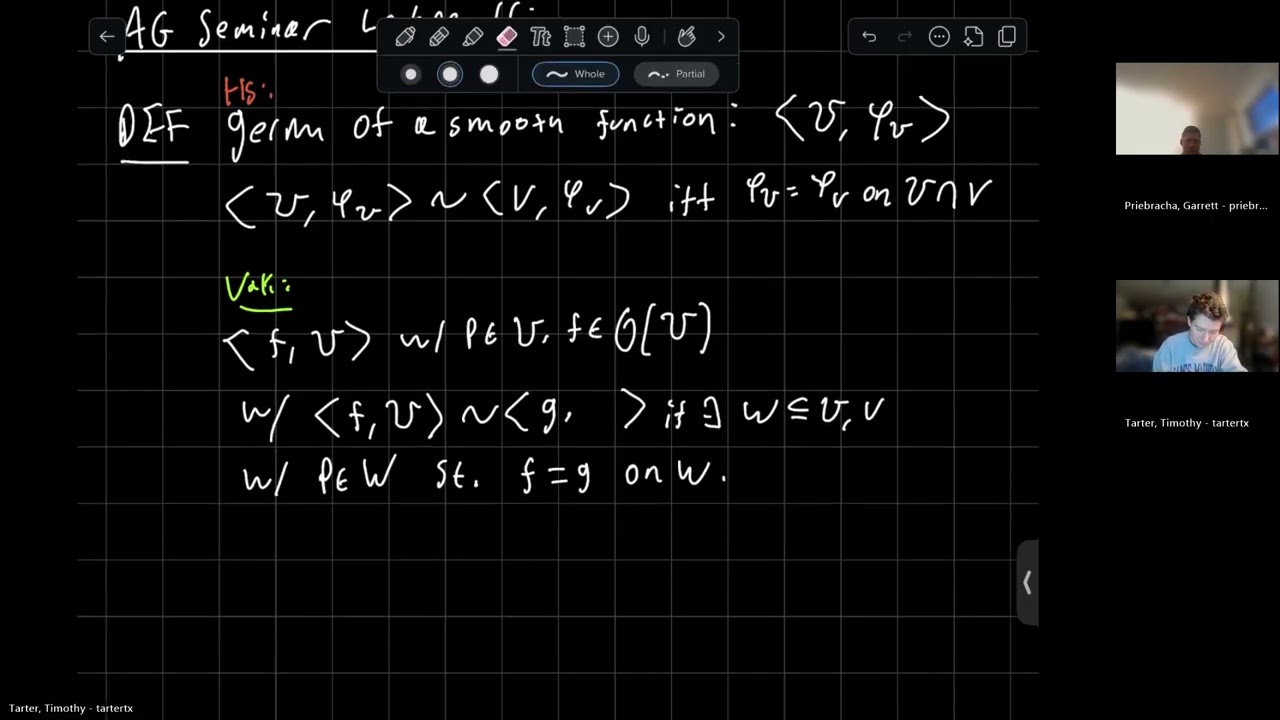 AG Seminar
Tt
Whole
Partial
Hs:
DEF germ of a smooth function: <U, φ_U>
<U, φ_U> ~ <V, φ_V> iff φ_U = φ_V on U∩V
Vak:
<f, U> w/ P∈ U, f∈ O(U)
w/ <f, U> ~ <g, > if ∃ W ⊆ U, V
w/ P∈ W st. f = g on W.
Priebracha, Garrett - priebr...
Tarter, Timothy - tartertx
Tarter, Timothy - tartertx